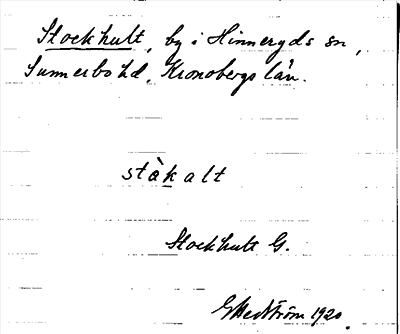 Stockhult, by i Hinneryds sn,
Sunnerbo hd, Kronobergs län.
stàkalt
Stockhult G.
G Hedström 1920.